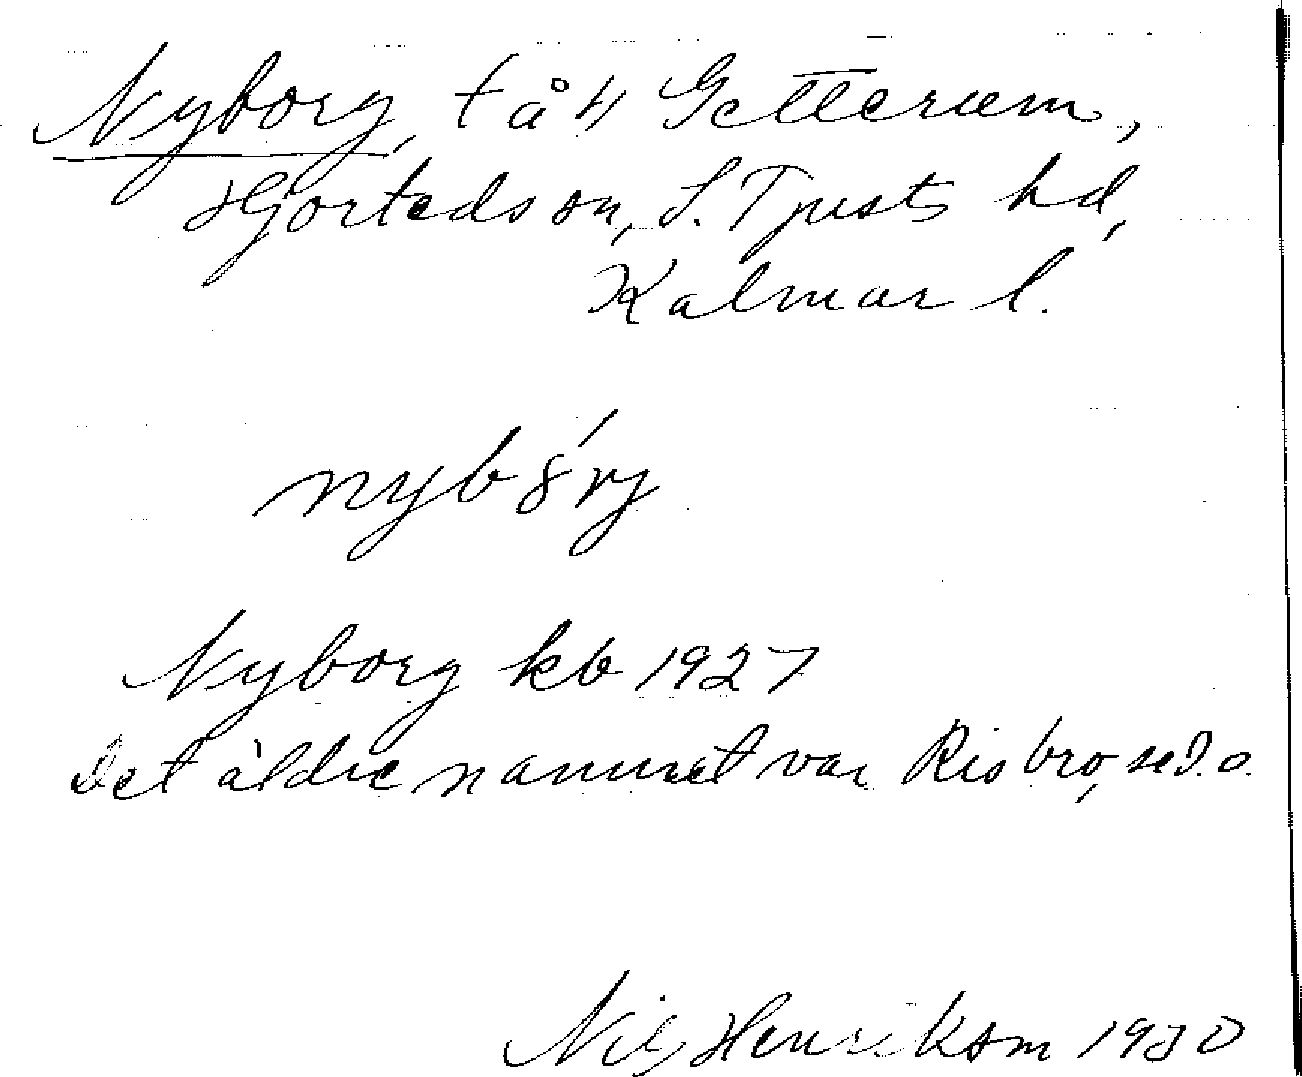 Nyborg, t å H Getterum,
Hjorteds sn, S. Tjusts hd,
Kalmar l.
Nyborg kb 1927
Det äldre namnet var Risbro, se d. o.
Nils Henrikson 1930